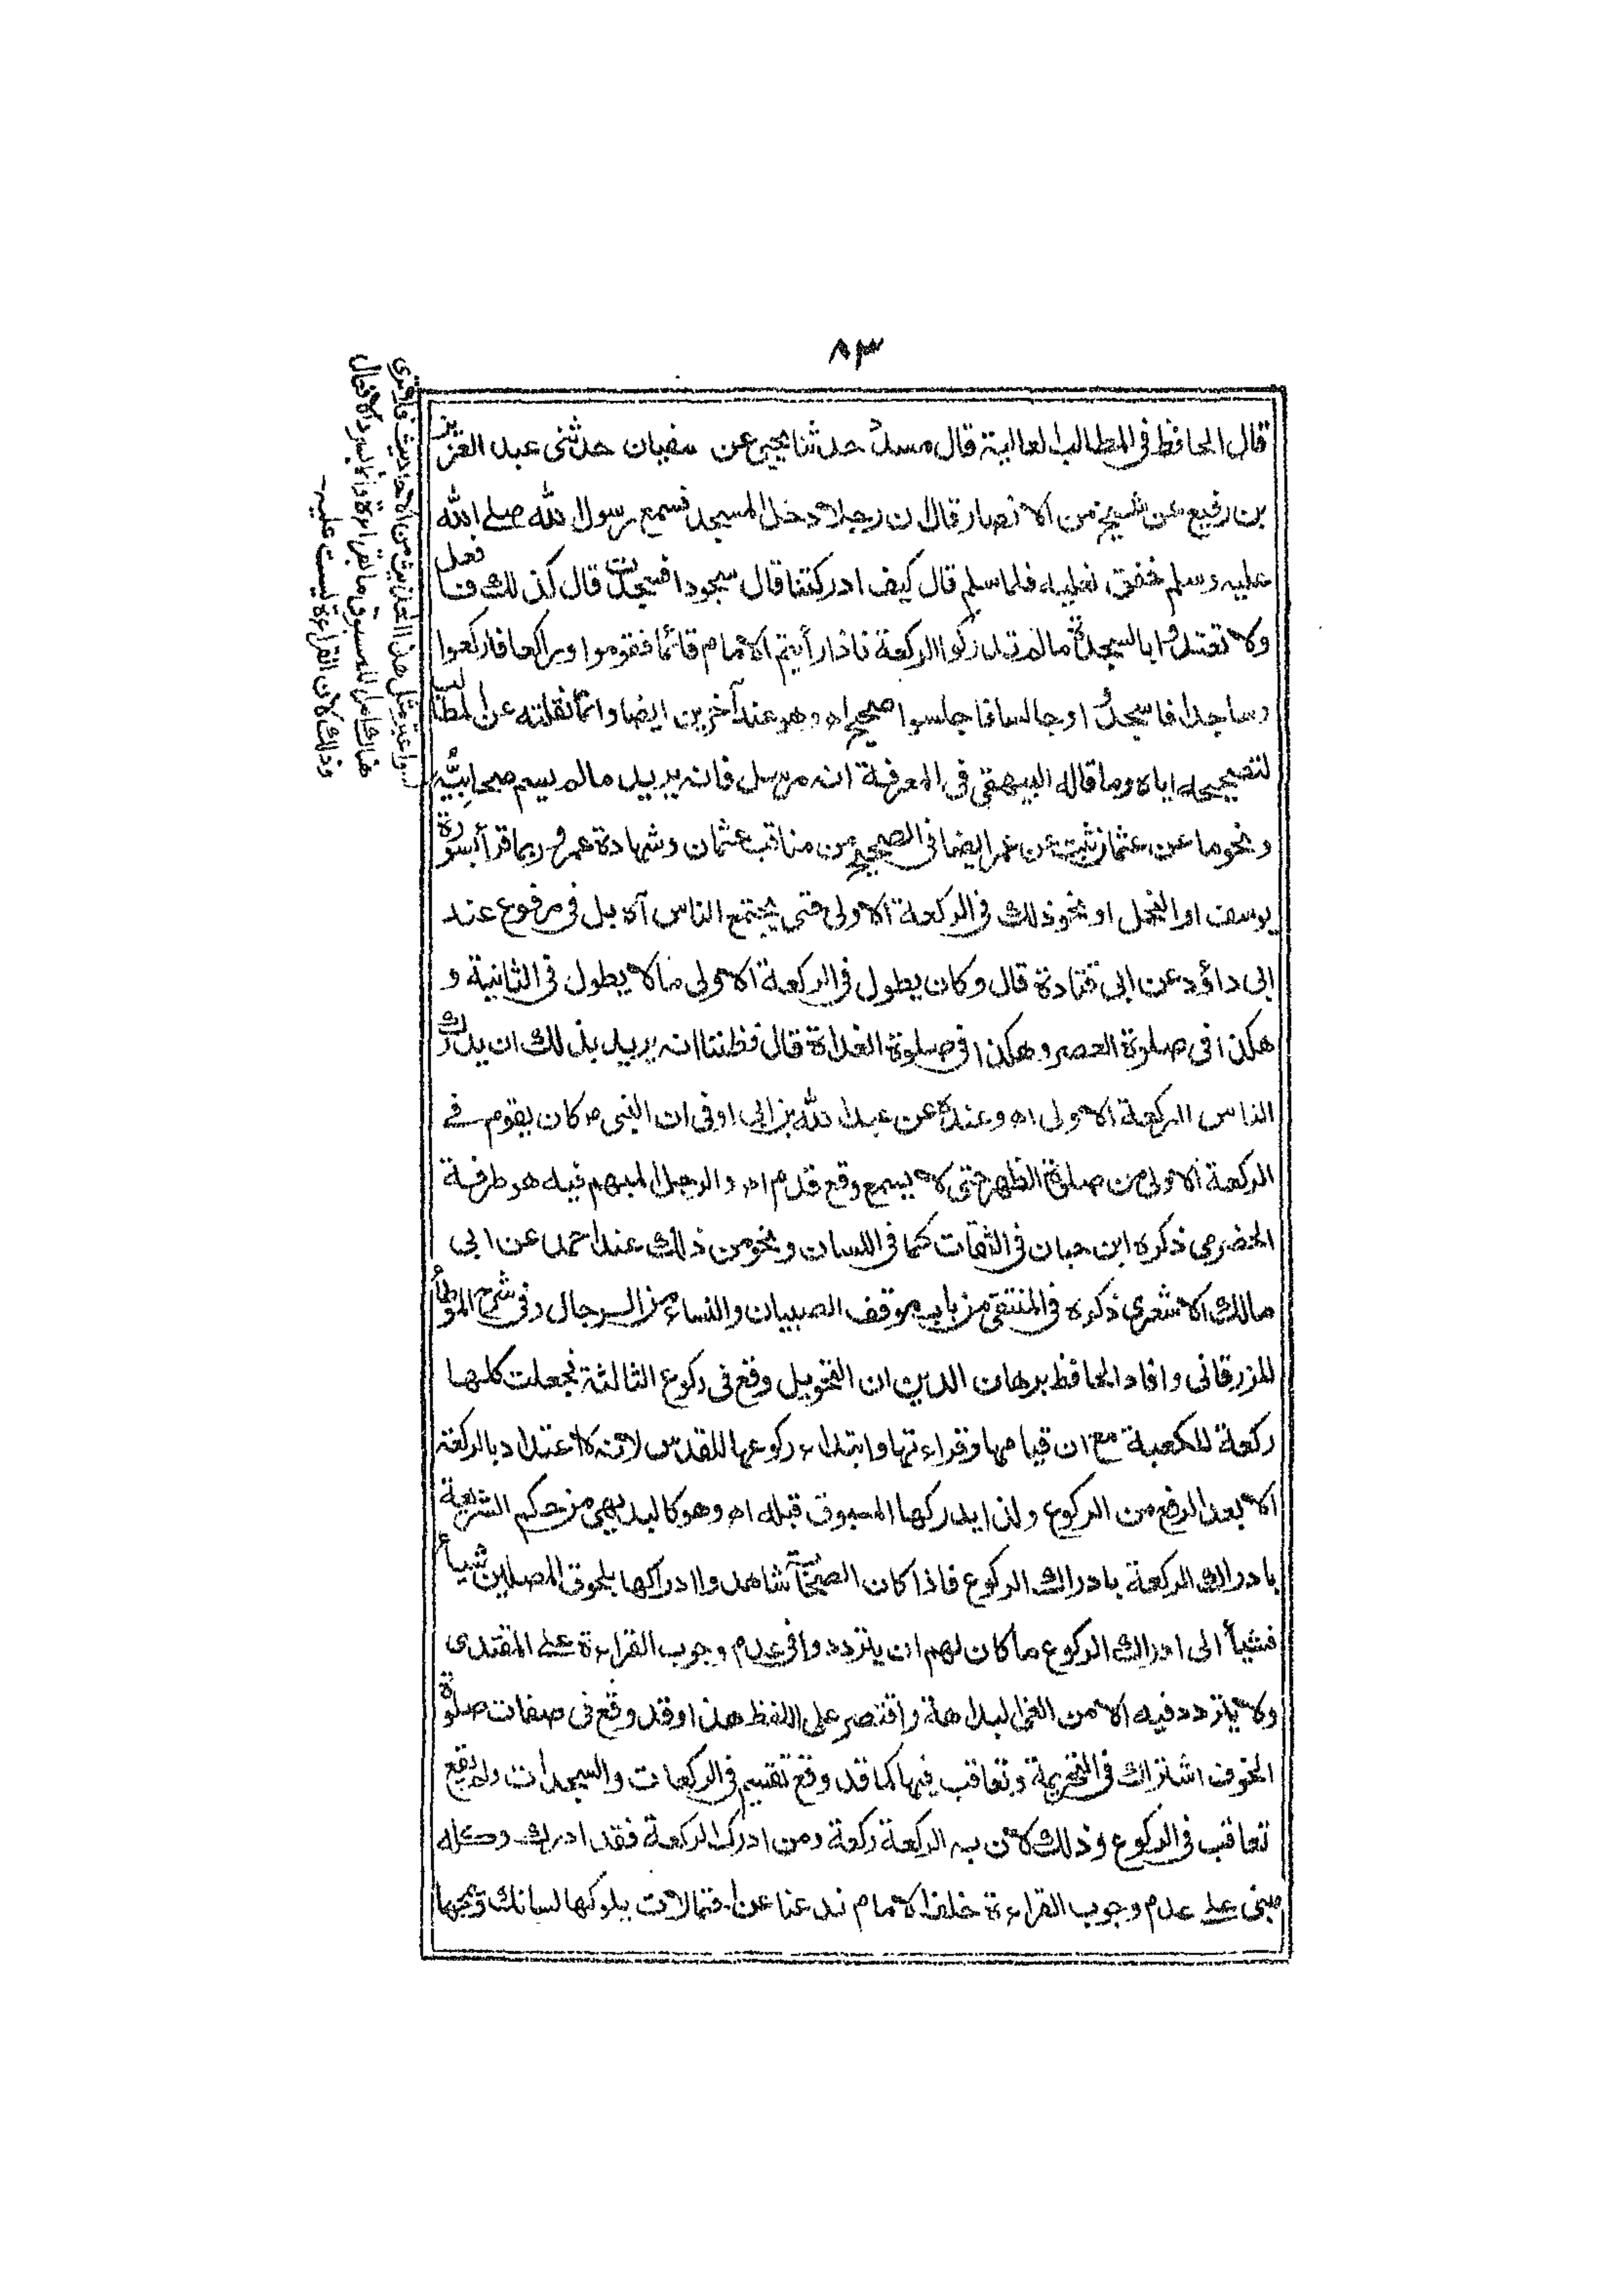 ٨٣
قال الحافظ فی المطالب العالیة قال مسدد حدثنا یحیی عن سفیان حدثنی عبد العزیز
بن رفیع عن شیخ من الانصار قال ان رجلا دخل المسجد فسمع رسول الله صلے الله
علیه وسلم خفق نعلیه فلما سلم قال کیف ادرکتنا قال سجودا فسجدت قال کذلك فافعل
ولا تعتدوا بالسجدة مالم تدرکوا الرکعة فاذا رأیتم الامام قائما فقوموا وراکعا فارکعوا
وساجدا فاسجدوا وجالسا فاجلسوا صحیح اه وهو عند آخرین ایضا وانما نقلته عن المطالب
لتصحیحه ایاه وما قاله البیهقی فی المعرفة انه مرسل فانه یرید مالم یسم صحابیه
ونحو ما عن عثمان ثبت عن عمر ایضا فی الصحیح من مناقب عثمان وشهادة عمر وربما قرأ بسورة
یوسف او النحل او نحو ذلك فی الرکعة الاولی حتی یجتمع الناس آه بل فی مرفوع عند
ابی داؤد عن ابی قتادة قال وکان یطول فی الرکعة الاولی مالا یطول فی الثانیة و
هکذا فی صلوة العصر وهکذا فی صلوة الغداة قال فظننا انه یرید بذلك ان یدرك
الناس الرکعة الاولی اه وعنده عن عبد الله بن ابی اوفی ان النبی م کان یقوم فے
الرکعة الاولی من صلوة الظهر حتی لا یسمع وقع قدم اه والرجل المبهم فیه هو طرفة
الحضرمی ذکره ابن حبان فی الثقات کما فی اللسان ونحو من ذلك عند احمد عن ابی
مالك الاشعری ذکره فی المنتقی من باب موقف الصبیان والنساء من الرجال وفی شرح المؤطأ
للزرقانی وافاد الحافظ برهان الدین ان التحویل وقع فی رکوع الثالثة فجعلت کلها
رکعة للکعبة مع ان قیامها وقراءتها وابتداء رکوعها للقدس لانه لا اعتداد بالرکعة
الا بعد الرفع من الرکوع ولذا یدرکها المسبوق قبله اه وهو کالبدیهی من حکم الشریعة
بادراك الرکعة بادراك الرکوع فاذا کان الصحابة شاهدوا ادراکها بلحوق المصلین شیأ
فشیأ الی ادراك الرکوع ما کان لهم ان یترددوا فی عدم وجوب القراءة علے المقتدی
ولا یتردد فیه الا من الغی البداهة واقتصر علی اللفظ هذا وقد وقع فی صفات صلوة
الخوف اشتراك فی التحریمة وتعاقب فیها کما قد وقع تقسیم فی الرکعات والسجدات ولم یقع
تعاقب فی الرکوع وذلك لان به الرکعة رکعة ومن ادرك الرکعة فقد ادرك وکله
مبنی علے عدم وجوب القراءة خلف الامام فدعنا عن احتمالات یلوکها لسانك وتمجها
مثل هذا التعزیز من الاحادیث
هناك شامل للمسبوق
وذلك لان القراءة لیست علیه